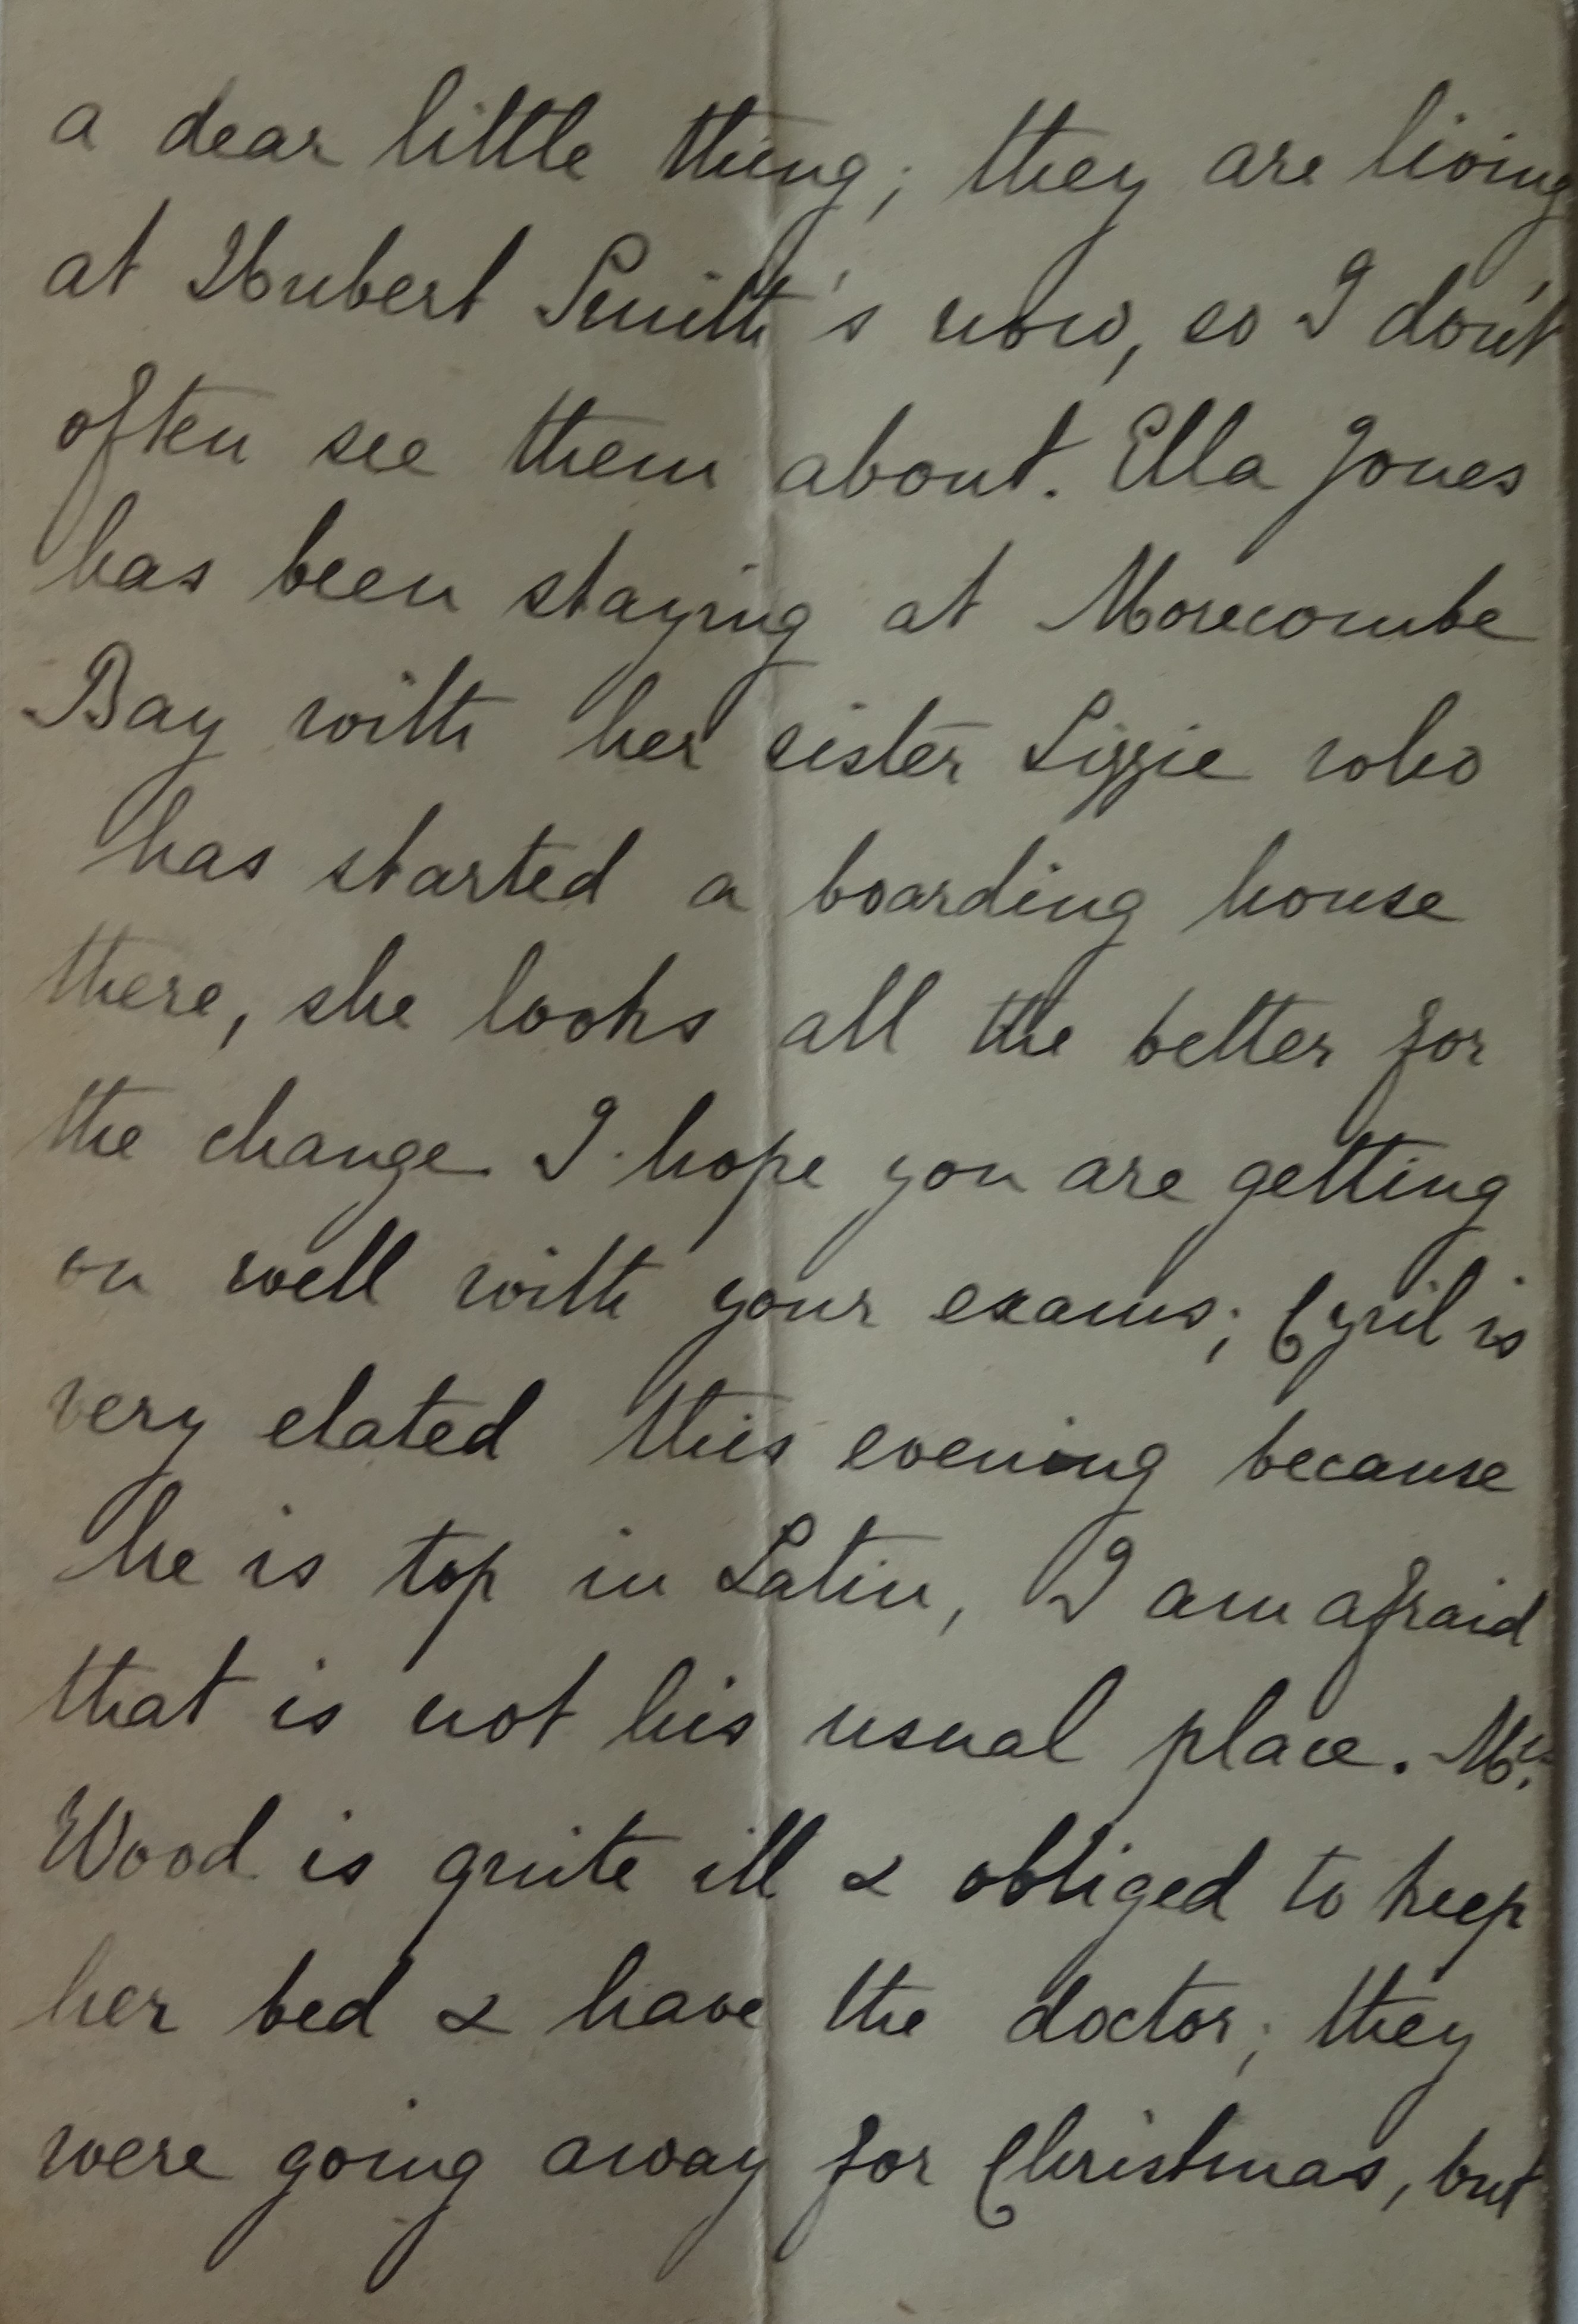 a dear little thing; they are living
at Hubert Smith's now, so I don't
often see them about. Ella Jones
has been staying at Morecombe
Bay with her sister Lizzie who
has started a boarding house
there, she looks all the better for
the change. I hope you are getting
on well with your exams; Cyril is
very elated this evening because
he is top in Latin, I am afraid
that is not his usual place. Mrs.
Wood is quite ill & obliged to keep
her bed & have the doctor; they
were going away for Christmas, but